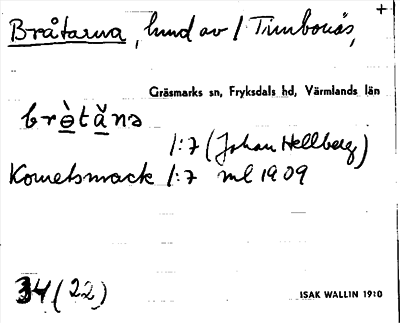 +
Bråtarna, hund av 1 Timbonäs,
Gräsmarks sn, Fryksdals hd, Värmlands län
brɵ̀tăna
1:7 (Johan Hellberg)
Kometsmack 1:7 ml 1909
34 (22)
ISAK WALLIN 1910